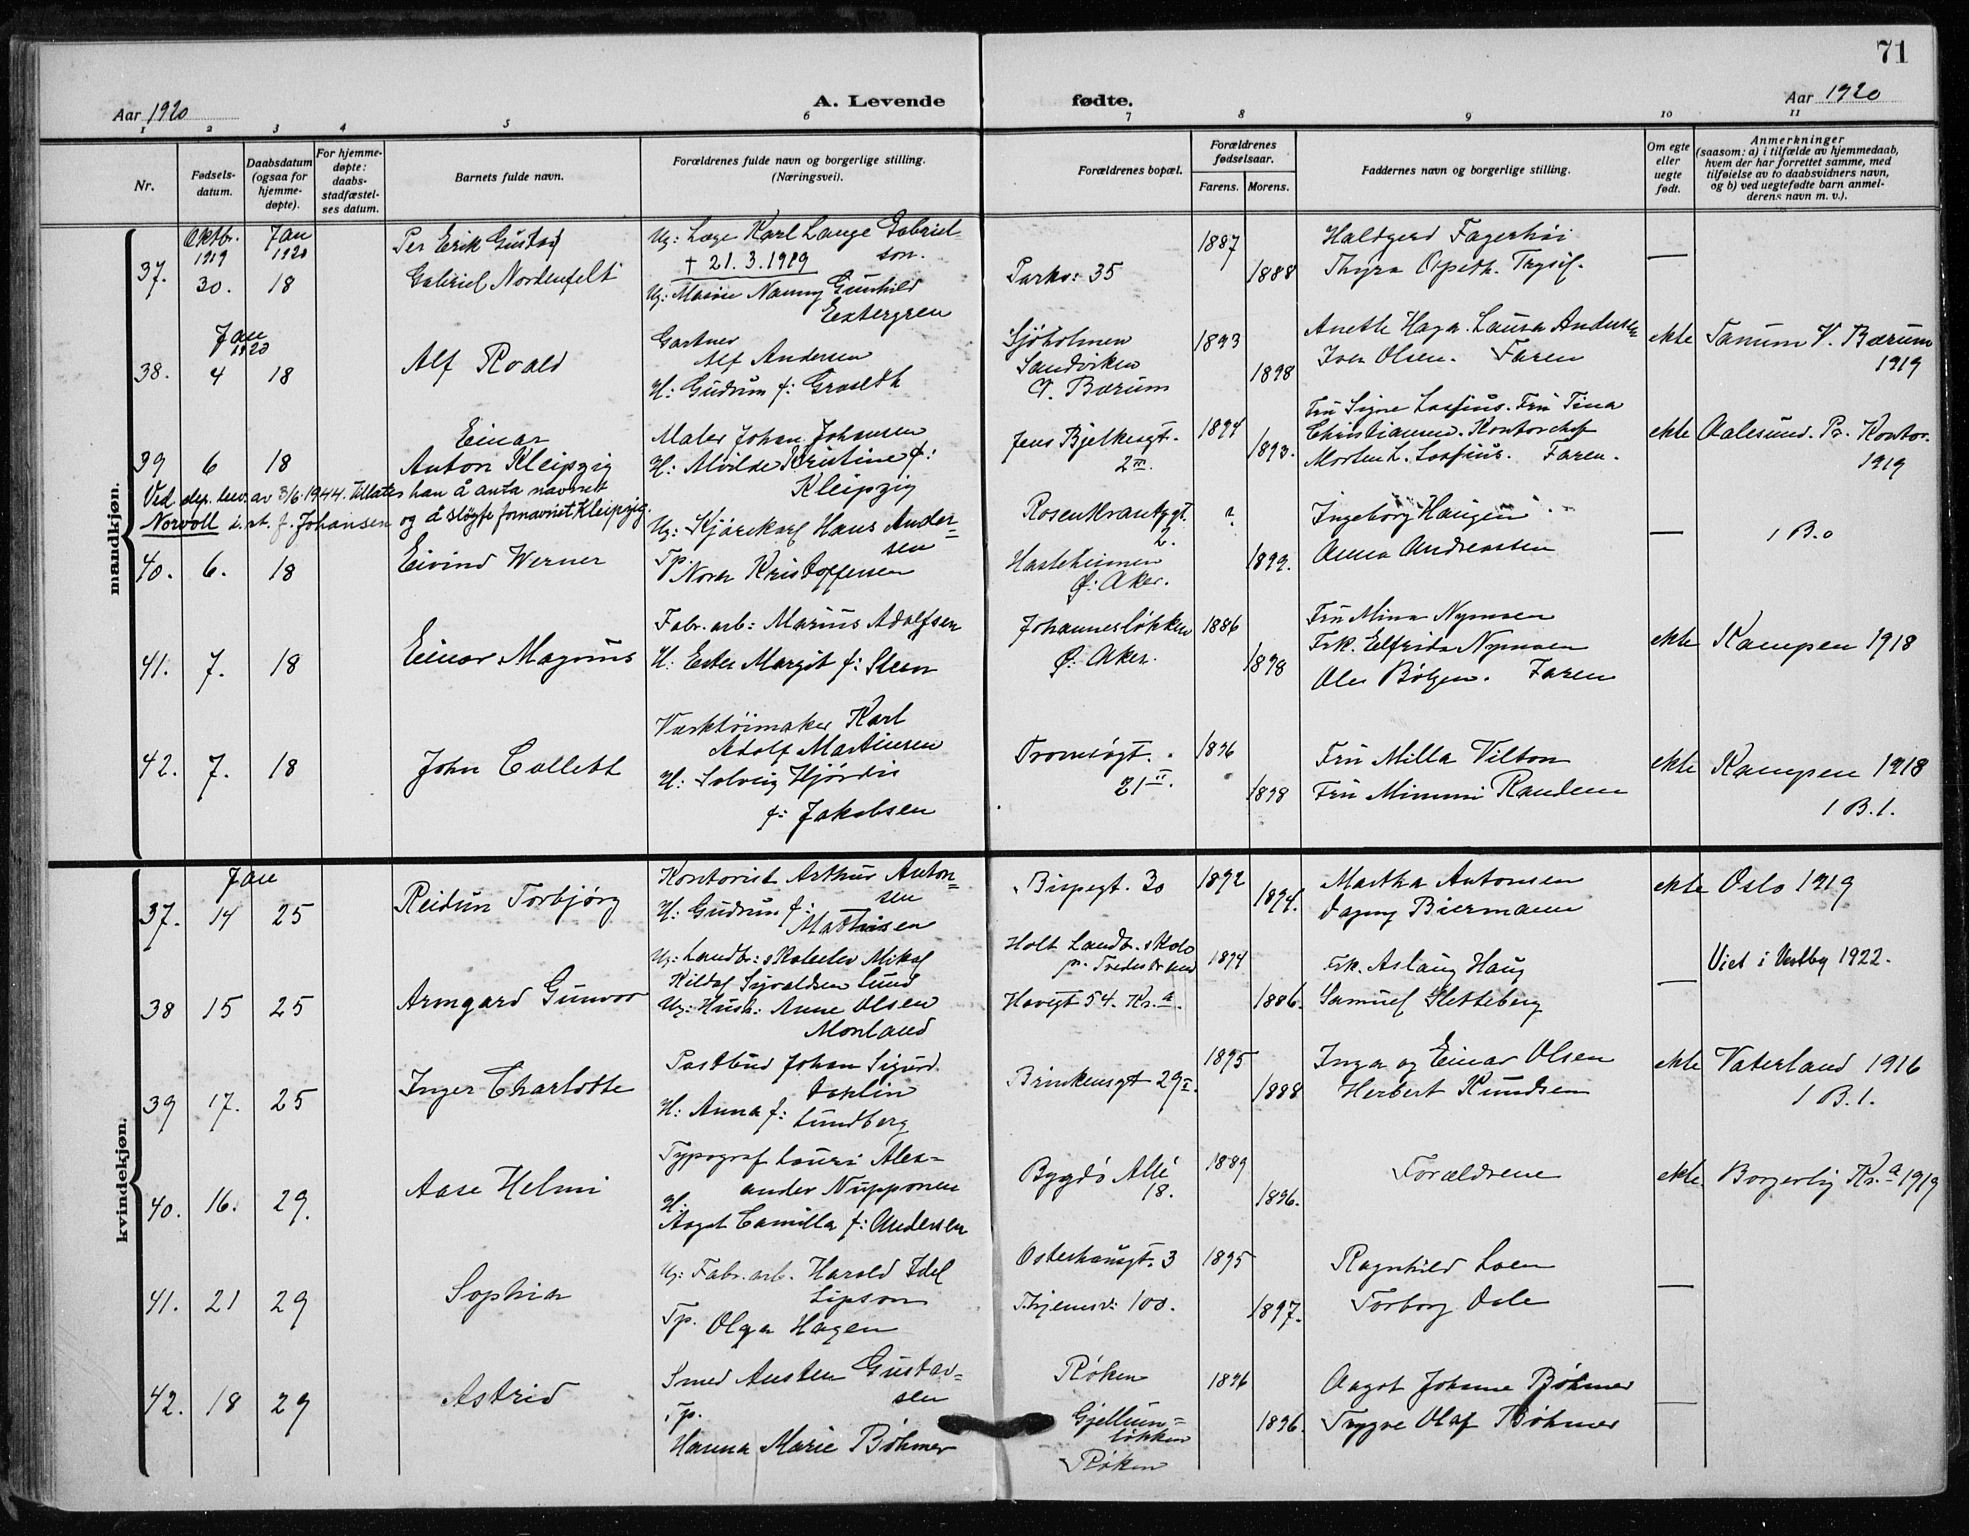 71
Aar 1920
A. Levende fødte.
Aar 1920
1 2 3 4 5 6 7 8 9 10 11
Nr.
Fødsels-
datum.
Daabsdatum
(ogsaa for
hjemme-
døpte).
For hjemme-
døpte:
daabs-
stadfæstel-
ses datum.
Barnets fulde navn.
Forældrenes fulde navn og borgerlige stilling.
(Næringsvei).
Forældrenes bopæl.
Forældrenes
fødselsaar.
Farens. Morens.
Faddernes navn og borgerlige stilling.
Om egte
eller
uegte
født.
Anmerkninger
(saasom: a) i tilfælde av hjemmedaab,
hvem der har forrettet samme, med
tilføielse av to daabsvidners navn,
og b) ved uegtefødte barn anmel-
derens navn m. v.).
mandkjøn.
37.
Oktbr.
1919
30.
Jan
1920
18
Per Erik Gustaf
Gabriel Nordenfelt
Ug: Læge Karl Lange Gabriel-
son.
† 21.3.1919
Ug: Nanny Gunhild
Parkv: 35
1887
1888
Fagerhøi
Thyra
—
38.
Jan
1920
4
18
Alf Roald
Gartner
Alf Andersen
H: Gudrun f: Graseth
Sjøholmen
Sandviken
V. Bærum
1893
1898
Anette Haga. Laura Andersen
Iver Olsen. Faren
ekte
Tanum V. Bærum
1919
39
6
18
Einar
Anton Kleipzig
Maler Johan Johansen
H: Alvilde Kristine f:
Kleipzig
Jens Bjelkesgt.
2 III.
1894
1893.
Fru Signe Lossius. Fru Tina
Christiansen. Kontorchef
Morten L. Lossius. Faren.
ekte
Aalesund. Pr. Kontor.
1919
Ved dep. bev. av 8/6.1944. tillates han å anta navnet
Norvoll i st. f. Johansen og å sløyfe fornavnet Kleipzig.
40.
6.
18
Eivind Werner
Ug: Kjørekarl Hans Ander-
sen
Tp.
Nora Kristoffersen
Rosenkrantzgt.
2.
Hasleheimen
Ø: Aker.
?
1899.
Ingeborg Haugen
Anna Andreassen
—
1 B.0
41.
7.
18
Einar Magnus
Fabr. arb: Marius Adolfsen
H: Ester Margit f: Steen
Johannesløkken
Ø: Aker.
1886
1898
Fru Mina Nymoen
Frk. Elfrida Nymoen
Ole Bølgen. Faren
ekte
Kampen 1918
42.
7.
18
John Collett
Værktøimaker Karl
Adolf Martinsen
H: Solveig Hjørdis
f: Jakobsen
Tromsøgt.
21 II.
1896
1898
Fru Milla Vilton
Fru Mimmi Randem
ekte
Kampen 1918
1 B.1.
kvindekjøn.
37.
Jan
14
25
Reidun Torbjørg
Kontorist Arthur Anton-
sen
H: Gudrun f:
Mathisen
Bispegt. 30
1892
1894.
Martha Antonsen
Dagny Biermann
ekte
Oslo 1919
38
15
25
Armgard Gunvor
Ug: Landbr: skoleelev Mikal
Kildal Sigvaldsen Lund
Ug: Hush: Anne Olsen
Monland
Holt Landbr. skole
pr. Tvedestrand
Havegt 54. Kr.a.
1894
1886.
Frk. Aslaug Haug
Samuel Sletteberg
—
Viet i Vestby 1922.
39
17.
25
Inger Charlotte
Postbud Johan Sigurd
Dehlin
H: Anna f:
Lundberg
Brinkensgt 29 I.
1895
1888
Inga og Einar Olsen
Herbert Knudsen
ekte
Vaterland 1916
1 B.1.
40.
16.
29.
Aase Helmi
Typograf Lauri Alex-
ander Nupponen
H:
Aagot Camilla f: Andersen
Bygdø Allé
18.
1889
1896.
Forældrene
ekte.
Borgerlig Kr.a 1919
41.
21
29
Sophia
Ug: Fabr. arb. Harald Idel
Lipson
Tp. Olga Hagen
Osterhausgt. 3
Thjemsv: 100.
1895
1897.
Ragnhild Loen
Torborg Dale
—
42.
18
29
Astrid
Smed Austen Gustav-
sen
Tp.
Hanna Marie Bøhmer
Røken
Gjellum-
løkken
Røken
1896
1896.
Aagot Johanne Bøhmer
Trygve Olaf Bøhmer
—